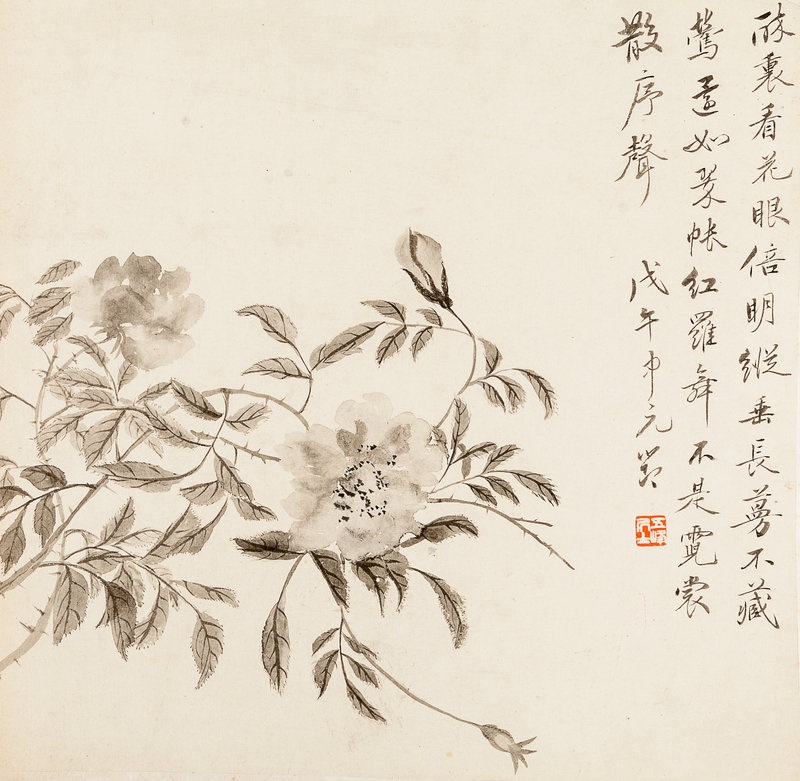 醉裏看花眼倍明縱垂長蔓不藏
鶯還如翠帳紅羅舞不是霓裳
散序聲 戊午中元節